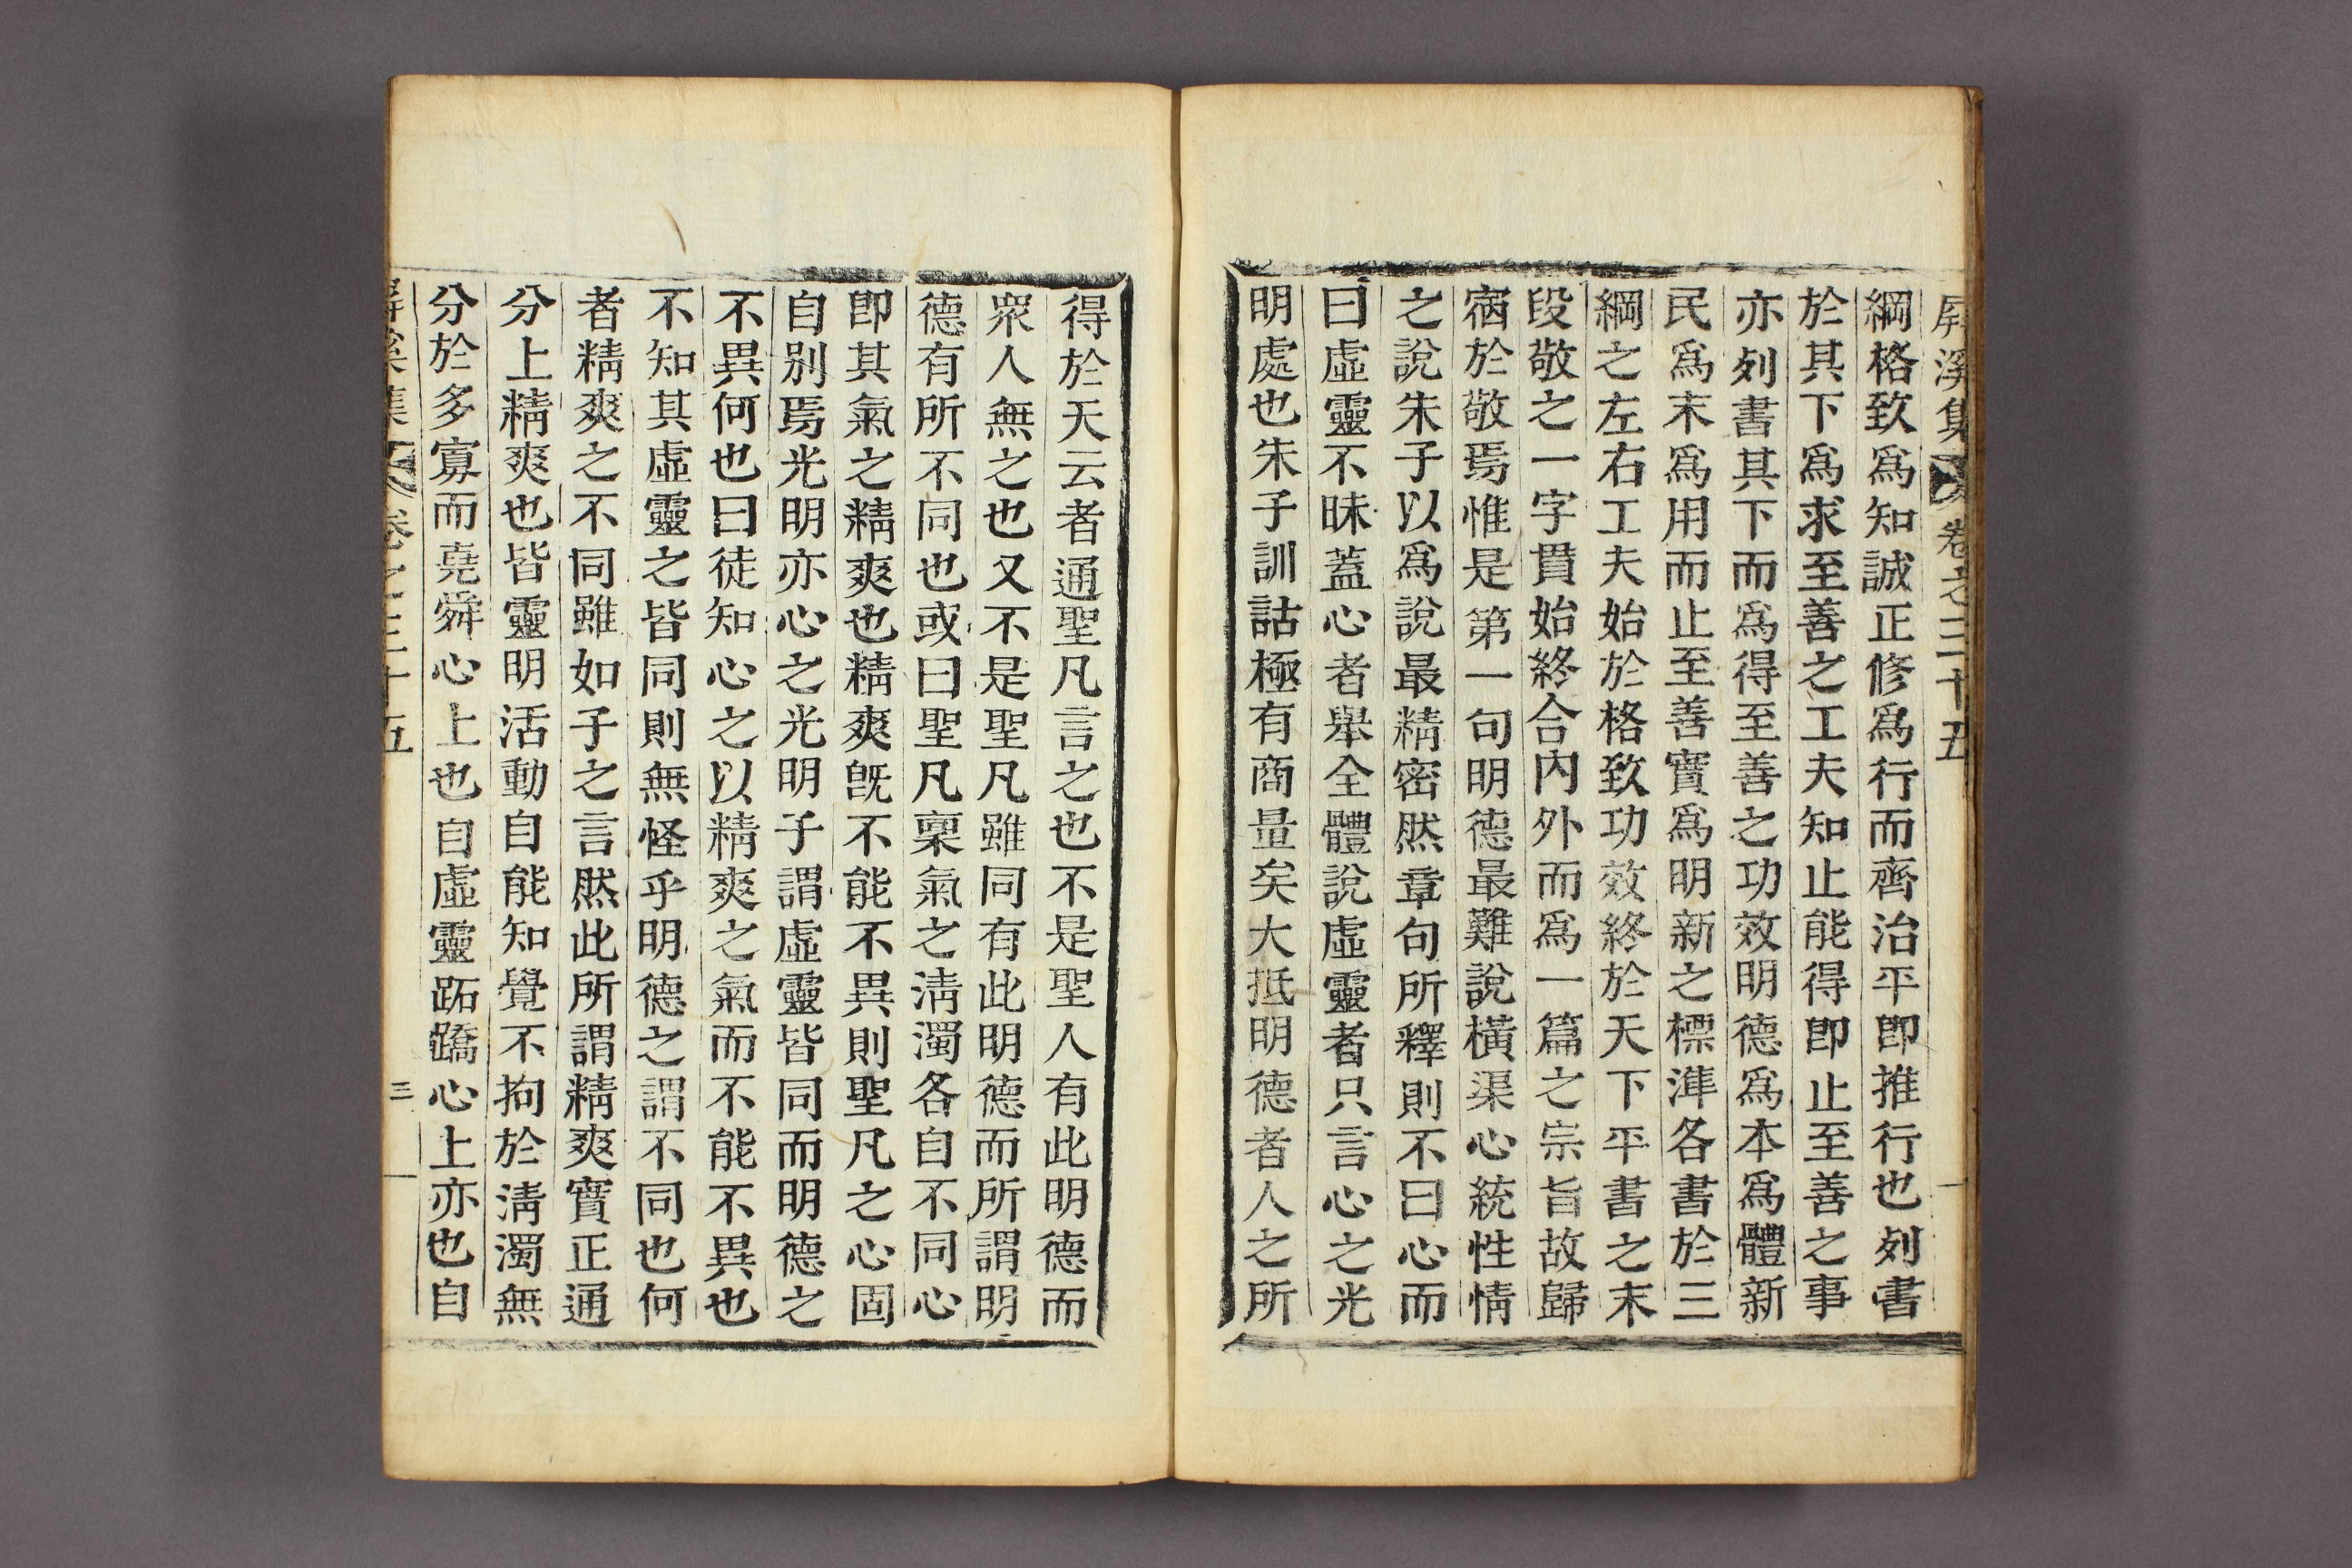 屛溪集 卷之三十五
綱格致爲知誠正修爲行而齊治平卽推行也列書
於其下爲求至善之工夫知止能得卽止至善之事
亦列書其下而爲得至善之功效明德爲本爲體新
民爲末爲用而止至善實爲明新之標準各書於三
綱之左右工夫始於格致功效終於天下平書之末
段敬之一字貫始終合內外而爲一篇之宗旨故歸
宿於敬焉惟是第一句明德最難說橫渠心統性情
之說朱子以爲說最精密然章句所釋則不曰心而
曰虛靈不昧蓋心者擧全體說虛靈者只言心之光
明處也朱子訓詁極有商量矣大抵明德者人之所
得於天云者通聖凡言之也不是聖人有此明德而
衆人無之也又不是聖凡雖同有此明德而所謂明
德有所不同也或曰聖凡稟氣之淸濁各自不同心
卽其氣之精爽也精爽旣不能不異則聖凡之心固
自別焉光明亦心之光明子謂虛靈皆同而明德之
不異何也曰徒知心之以精爽之氣而不能不異也
不知其虛靈之皆同則無怪乎明德之謂不同也何
者精爽之不同雖如子之言然此所謂精爽實正通
分上精爽也皆靈明活動自能知覺不拘於淸濁無
分於多寡而堯舜心上也自虛靈跖蹻心上亦也自
屛溪集 卷之三十五 三